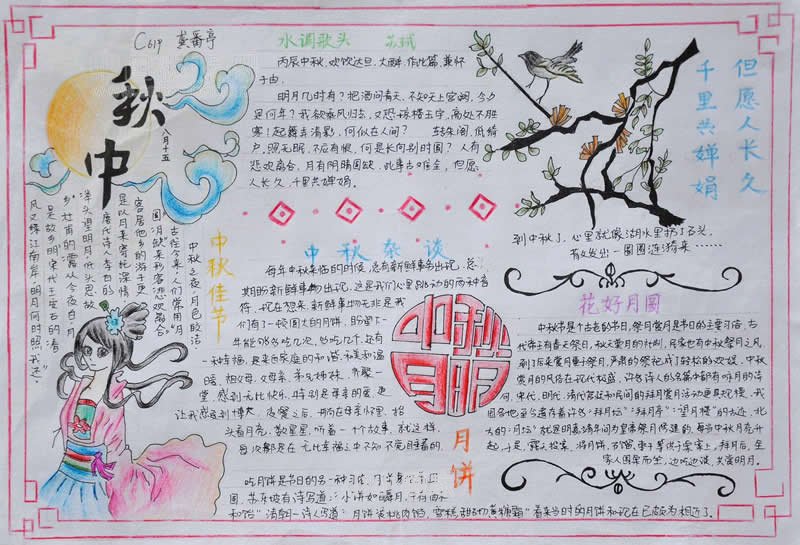 C619
秋中
八月十五
水调歌头 苏轼
丙辰中秋，欢饮达旦，大醉，作此篇，兼怀
子由。
明月几时有？把酒问青天，不知天上宫阙，今夕
是何年？我欲乘风归去，又恐琼楼玉宇，高处不胜
寒！起舞弄清影，何似在人间？ 转朱阁，低绮
户，照无眠，不应有恨，何是长向别时圆？人有
悲欢离合，月有阴晴圆缺，此事古难全，但愿
人长久，千里共婵娟。
但愿人长久
千里共婵娟
到中秋了，心里就像湖水里扔了石头，
有发出一圈圈涟漪来……
中秋佳节
中秋之夜，月色皎洁，
古往今来，人们常用“月
圆月缺”来形容“悲欢离合”
客居他乡的游子，更
是以月来寄托深情
唐代诗人李白的“
举头望明月，低头思故
乡”，杜甫的“露从今夜白，月
是故乡明”，宋代王安石的“春
风又绿江南岸，明月何时照我还”
中秋杂谈
每年中秋来临的时候，总有新鲜事务出现，总
共期盼新鲜事物出现，这是我们心里跳动的两种音
符，现在想来，新鲜事物无非是我
们有了一顿圆大的月饼，盼望下一
年能够多吃几次，多吃几个，还有
一种幸福，是来自家庭的和谐和美和温
暖，祖父母，父母亲，弟兄姊妹，齐聚一
堂，感到无比快乐，特别是母亲的爱，更
让我感受到博大，夜餐之后，躺在母亲怀里，抬
头看月亮，数星星，听着一个故事，就这样，
每次都是在无比幸福之中不知不觉睡着的
中秋月明
月饼
吃月饼是节日的另一种习俗，
团，苏东坡有诗写道：“小饼如嚼月，
和饴”清朝一诗人写道：“月饼裹桃肉馅，雪糕甜砌蔗糖霜”看来当时的月饼和现在已颇为相近了。
花好月圆
中秋节是个古老的节日，祭月赏月是节日的主要习俗，古
代帝王有春天祭日，秋天祭月的社制，民家也有中秋祭月之风，
到了后来赏月重于祭月，严肃的祭祀成了轻松的欢娱，中秋
赏月的风俗在唐代极盛，许多诗人的名篇中都有咏月的诗
句，宋代，明代，清代宫廷和民间的拜月赏月活动更具规模，我
国各地至今遗存着许多“拜月坛”“拜月亭”“望月楼”的古迹，北
大的“月坛”就是明嘉靖年间为皇家祭月修建的，每当中秋月亮升
起，于是，露天设案，将月饼，石榴，枣子等供于桌案上，拜月后，全
家人围桌而坐，边吃边谈，共赏明月。